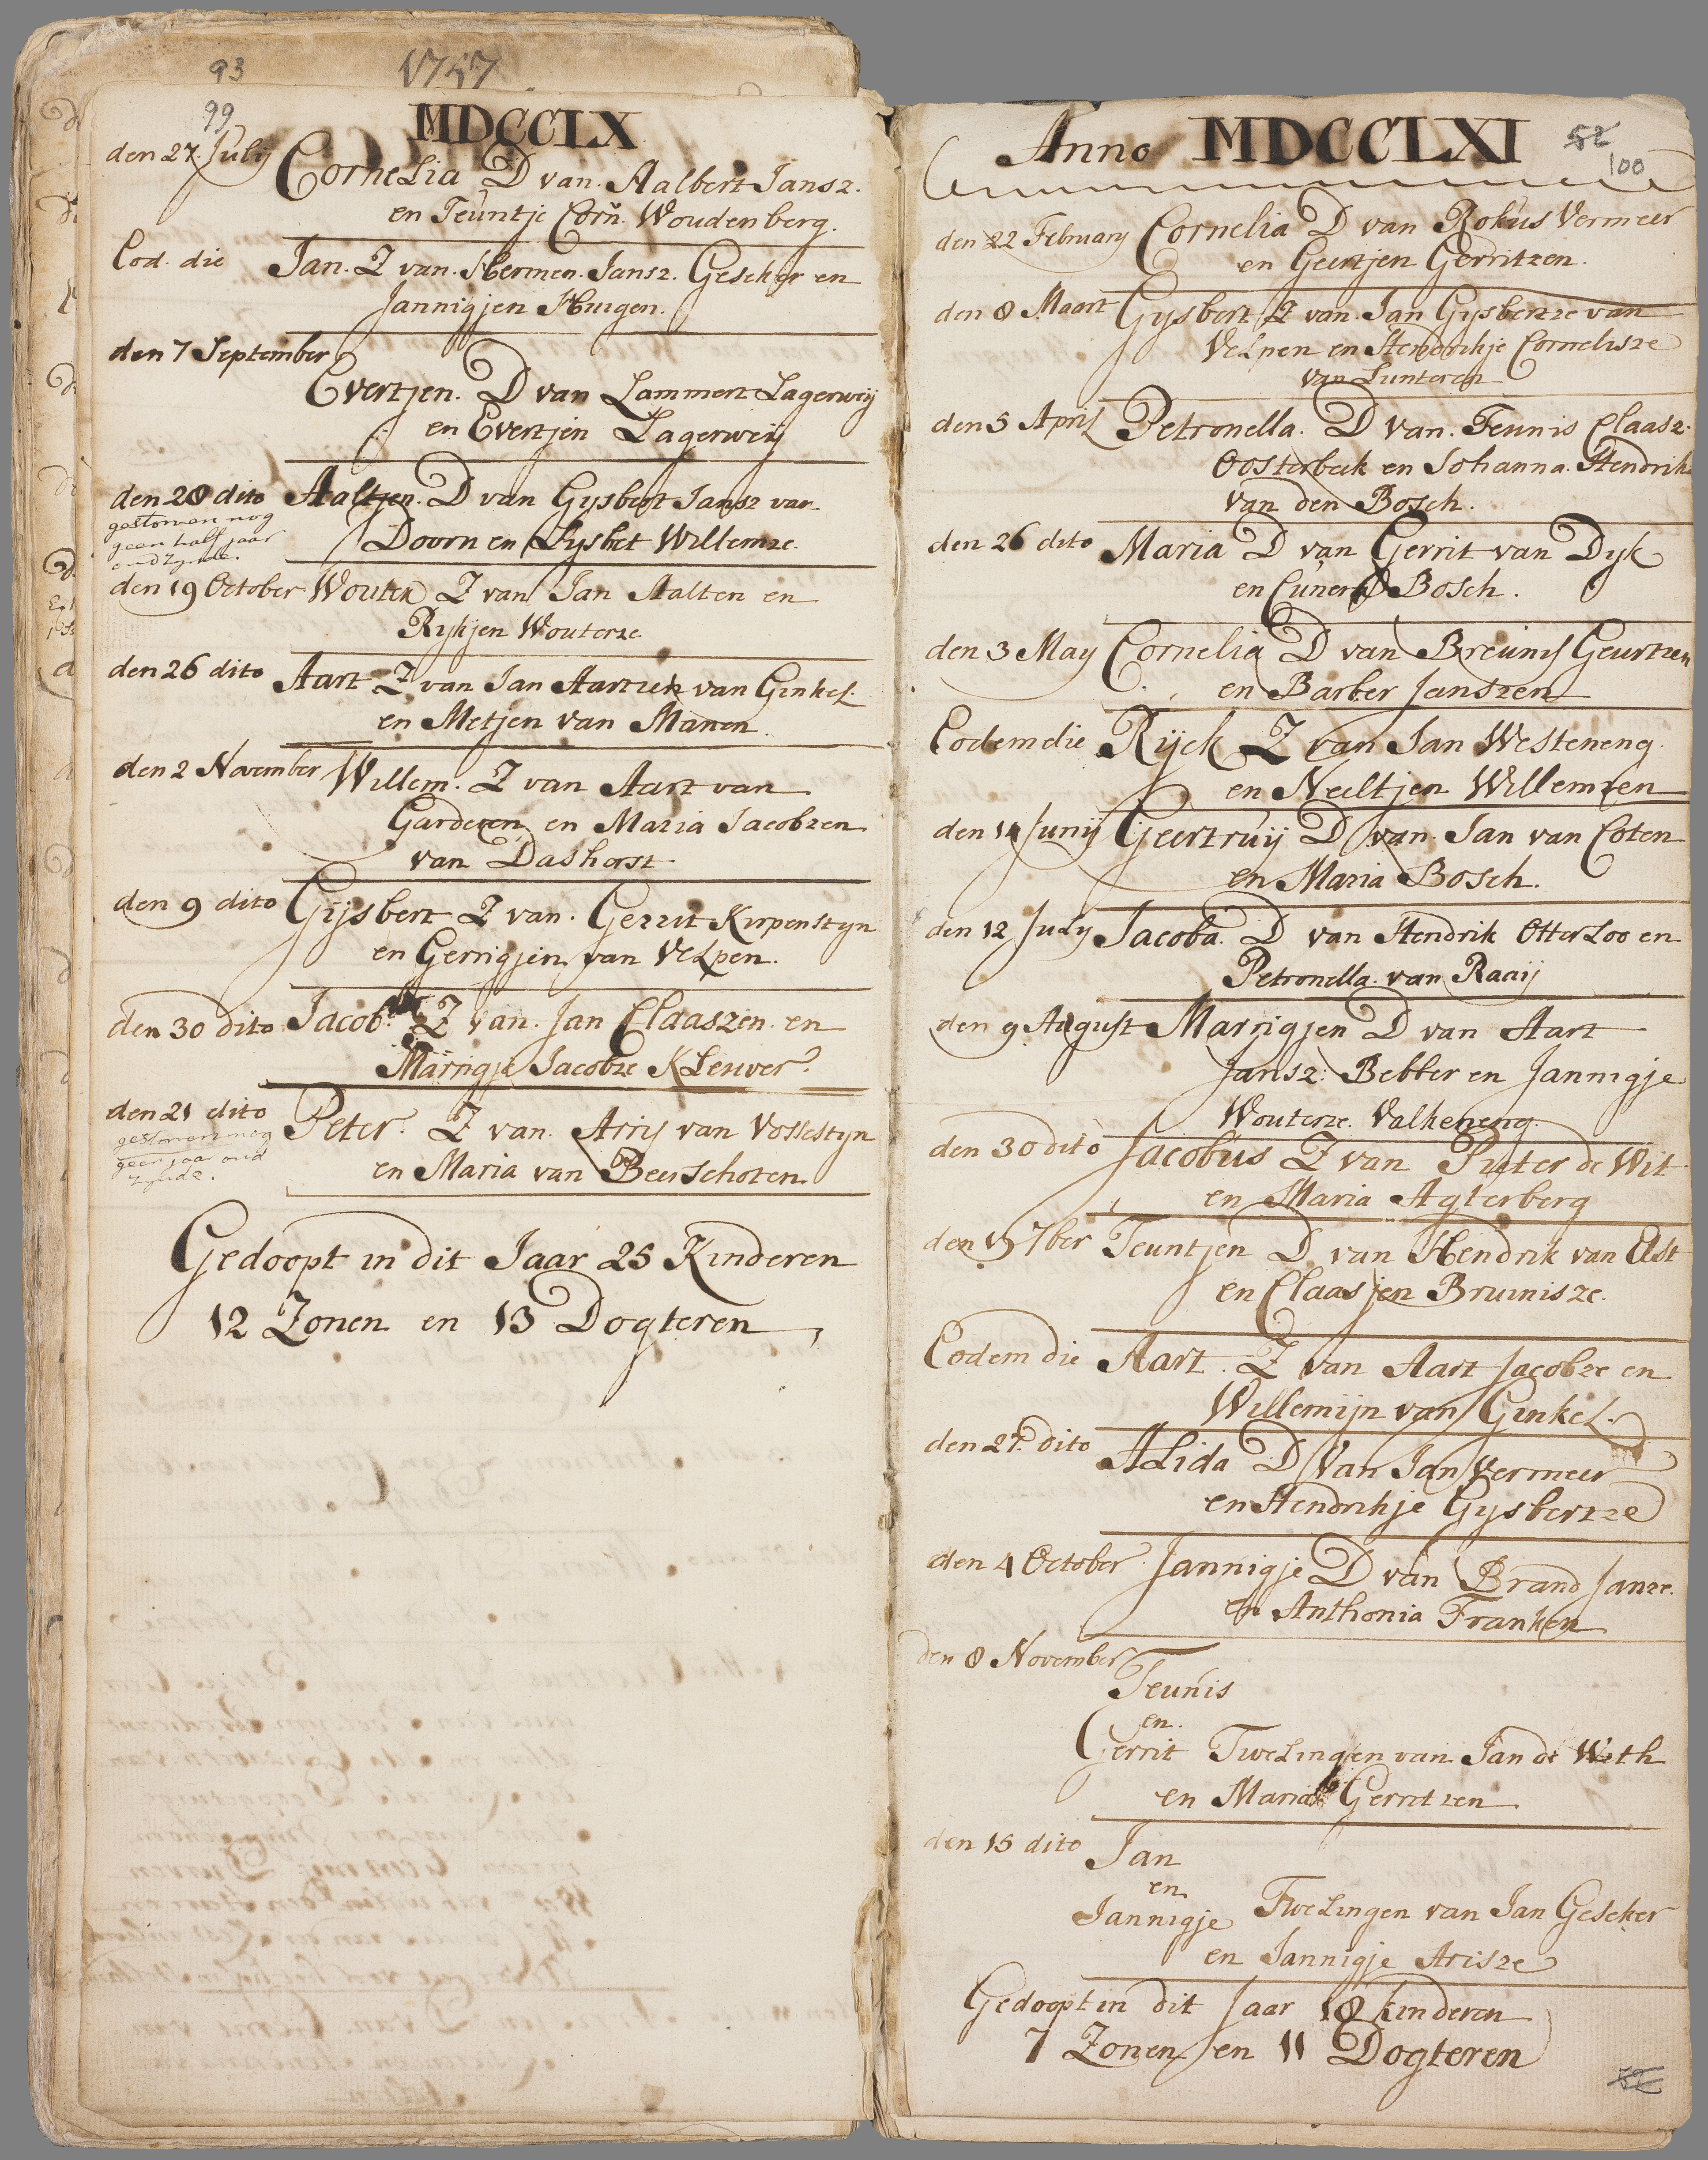 93
1757
99
MDCCLX
den 27 July Cornelia D van Aalbert Jansz.
en Teuntje Corn. Woudenberg.
Eod. die Jan. Z van Hermen Jansz. Gescher en
Jannigjen Huigen.
den 7 September
Evertjen. D van Lammert Lagerweij
en Evertjen Lagerweij
den 28 dito Aaltjen. D van Gysbert Jansz van
gestorven nog
geen half jaar
oud zynde.
Doorn en Lysbet Willemze.
den 19 October Wouter Z van Jan Aalten en
Rykjen Wouterze
den 26 dito Aart Z van Jan Aartzen van Ginkel
en Metjen van Manen
den 2 November Willem. Z van Aart van
Garderen en Maria Jacobzen
van Dashorst
den 9 dito Gijsbert Z van. Gerrit Kirpenstyn
en Gerrigjen van Velpen.
den 30 dito Jacob Z van. Jan Claaszen. en
Marrigje Jacobze Kleuver.
den 21 dito Peter. Z van. Arrij van Vossestyn
gestorven nog
geen jaar oud
zynde.
en Maria van Beeuschoten
Gedoopt in dit Jaar 25 Kinderen
12 Zonen en 13 Dogteren
Anno MDCCLXI
52
100
den 22 February Cornelia D van Rokus Vermeer
en Geertjen Gerritzen.
den 8 Maart Gysbert Z van Jan Gysbertze van
Velpen en Hendrikje Cornelisze
van Lunteren
den 5 April Petronella. D van. Teunis Claasz.
Oosterbeek en Johanna. Hendrik
van den Bosch.
den 26 dito Maria D van Gerrit van Dyk
en Cunera Bosch.
den 3 May Cornelia D van Breunis Geurtzen
en Barber Janszen
Eodem die Rijck Z van Jan Westeneng.
en Neeltjen Willemzen
den 14 Junij Geertruij D van. Jan van Coten
en Maria Bosch.
den 12 July Jacoba. D van Hendrik Otterloo en
Petronella. van Raaij
den 9 August Marrigjen D van Aart
Jansz: Bebber en Jannigje
Wouterze. Valkeneng.
den 30 dito Jacobus Z van Pieter de Wit
en Maria Agterberg
den 7ber Teuntjen D van Hendrik van Elst
en Claasjen Bruinisze.
Eodem die Aart. Z van Aart Jacobze en
Willemijn van Ginkel.
den 27. dito Alida D Van Jan Vermeer
en Hendrikje Gysbertze
den 4 October Jannigje D van Brand Janze.
en Anthonia Franken
den 8 November
Teunis
en.
Gerrit Twelingen van Jan de With
en Maria Gerritzen
den 15 dito Jan
en
Jannigje Twelingen van Jan Gescher
en Jannigje Arisze
Gedoopt in dit Jaar 18 kinderen
7 Zonen en 11 Dogteren
52